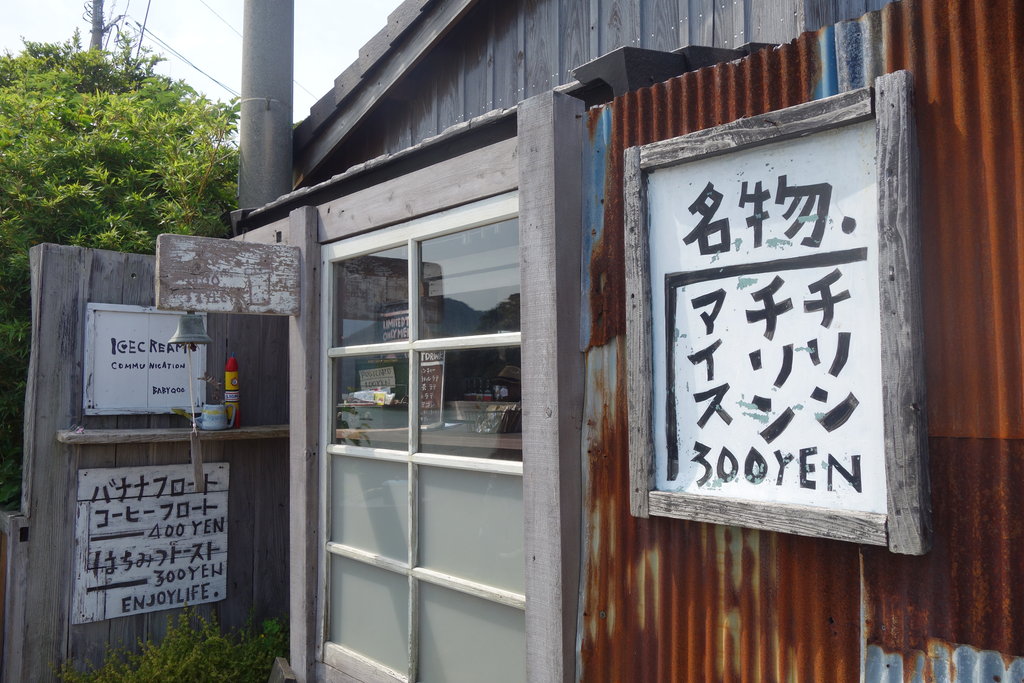 名物.
チリン
チリン
アイス
300YEN
ICECREAM
COMMUNICATION
BABYGOO
バナナフロート
コーヒーフロート
400YEN
はちみつトースト
300YEN
ENJOYLIFE.
LIMITED
ONLY ME